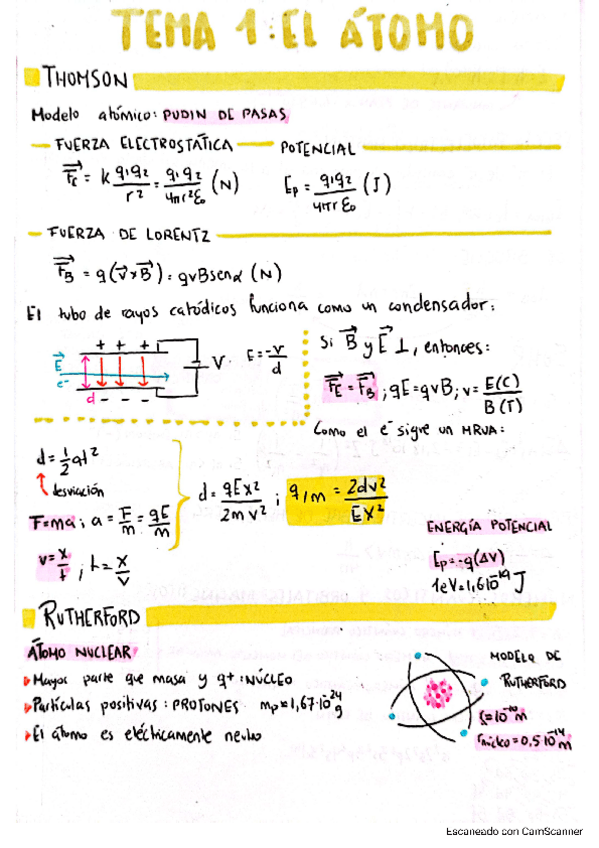 TEMA 1: EL ÁTOMO
THOMSON
Modelo atómico: PUDIN DE PASAS
FUERZA ELECTROSTÁTICA
POTENCIAL
F⃗e = K q₁q₂/r² = q₁q₂/4πr²ε₀ (N)
Ep = q₁q₂/4πrε₀ (J)
FUERZA DE LORENTZ
F⃗B = q(v⃗ x B⃗) = qvBsenα (N)
El tubo de rayos catódicos funciona como un condensador:
+ + +
E⃗
e⁻
d
- - -
V
E = -V/d
Si B⃗ y E⃗ ⊥, entonces:
F⃗E = F⃗B ; qE = qvB ; v = E(C)/B(T)
Como el e⁻ sigue un MRUA:
d = 1/2 at²
desviación
F=ma ; a = F/m = qE/m
v = x/t ; t = x/v
d = qEx²/2mv² ; q/m = 2dv²/EX²
ENERGÍA POTENCIAL
Ep = -q(ΔV)
1eV = 1,6·10⁻¹⁹ J
RUTHERFORD
ÁTOMO NUCLEAR
Mayor parte que masa y q+ : NÚCLEO
Partículas positivas : PROTONES mp = 1,67·10⁻²⁴ g
El átomo es eléctricamente neutro
MODELO DE
RUTHERFORD
=10⁻¹⁰ m
rnúcleo = 0,5·10⁻¹⁴ m
Escaneado con CamScanner